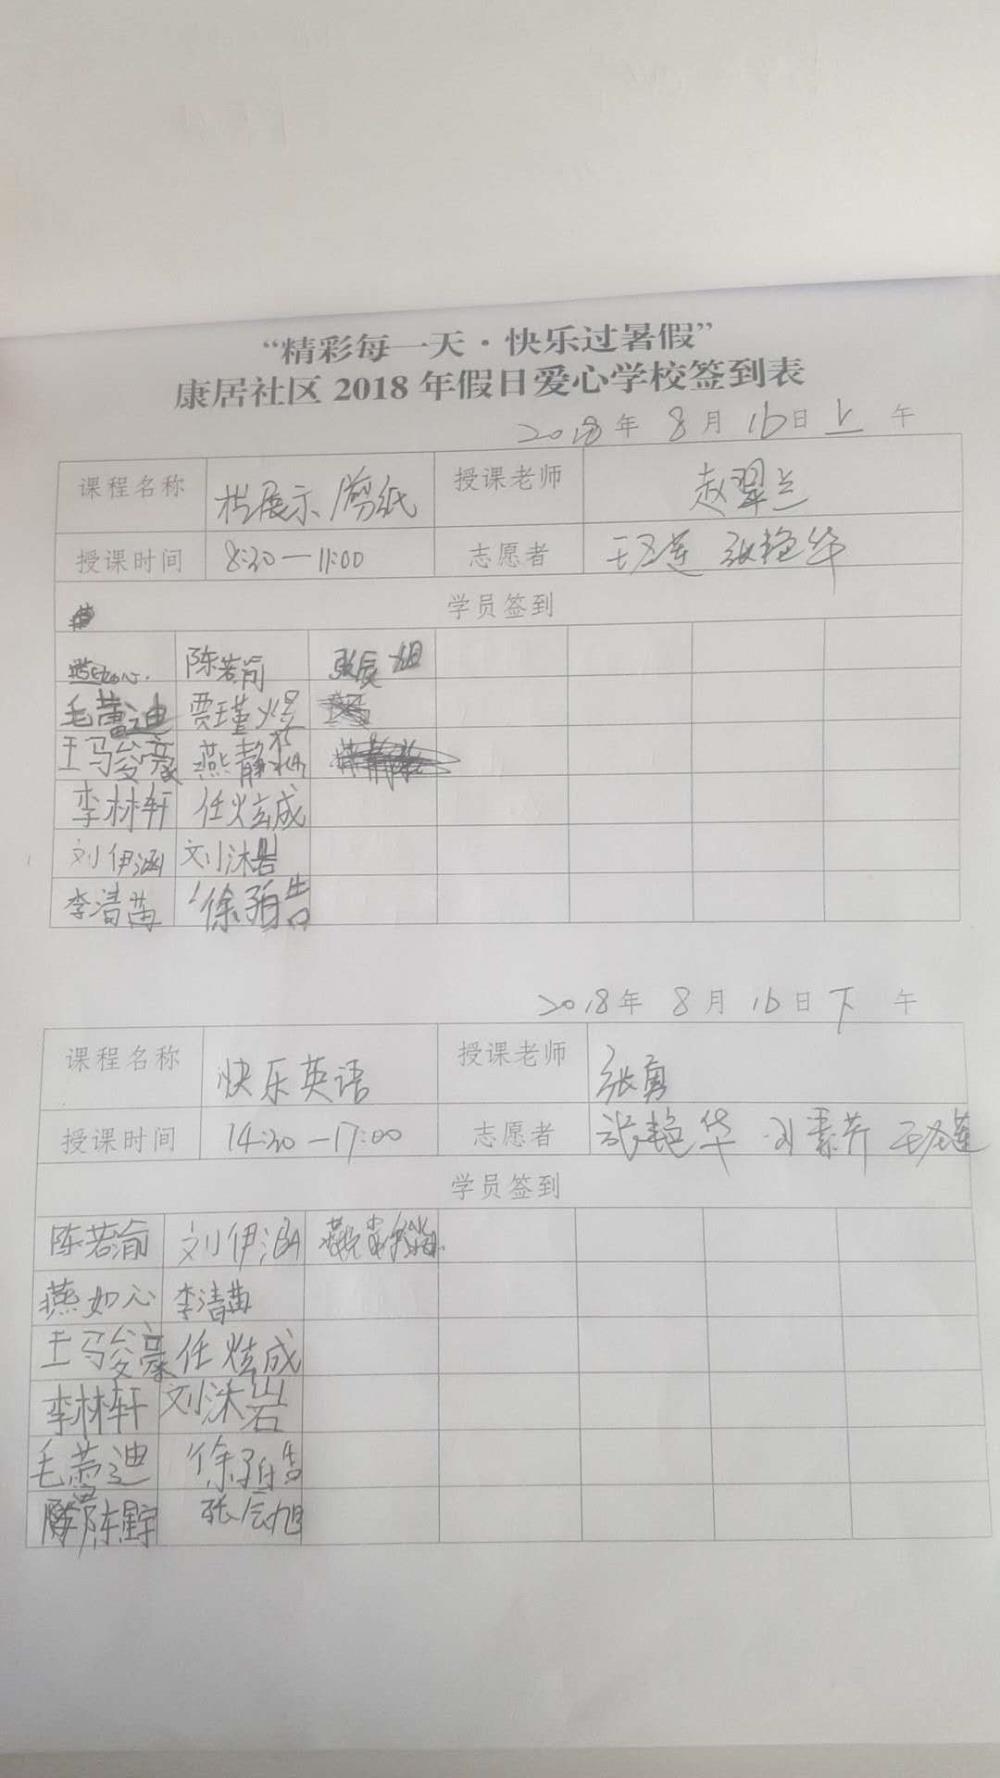 “精彩每一天·快乐过暑假”
康居社区 2018 年假日爱心学校签到表
2018 年 8 月 16 日 上 午
课程名称 展示 剪纸 授课老师 赵翠兰
授课时间 8:30—11:00 志愿者 王圣莲 张艳华
学员签到
陈若渝 张辰旭
毛蕾迪 贾瑾煜
王马俊豪 燕静
李林轩 任炫成
刘伊涵 刘沐岩
李清苗 徐珀浩
2018 年 8 月 16 日 下 午
课程名称 快乐英语 授课老师 张勇
授课时间 14:30—17:00 志愿者 张艳华 刘素芹 王圣莲
学员签到
陈若渝 刘伊涵
燕如心 李清苗
王马俊豪 任炫成
李林轩 刘沐岩
毛蕾迪 徐
陈 张辰旭